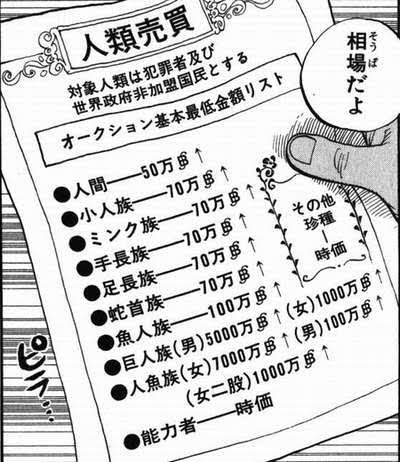 人類売買
対象人類は犯罪者及び
世界政府非加盟国民とする
オークション基本最低金額リスト
●人間──50万฿↑
●小人族──70万฿↑
●ミンク族──70万฿↑
●手長族──70万฿↑
●足長族──70万฿↑
●蛇首族──70万฿↑
●魚人族──100万฿↑
●巨人族(男)5000万฿↑ (女)1000万฿↑
●人魚族(女)7000万฿↑ (男)100万฿↑
(女二股)1000万฿↑
●能力者──時価
その他
珍種
│
時価
相場だよ
そうば
ピラ…